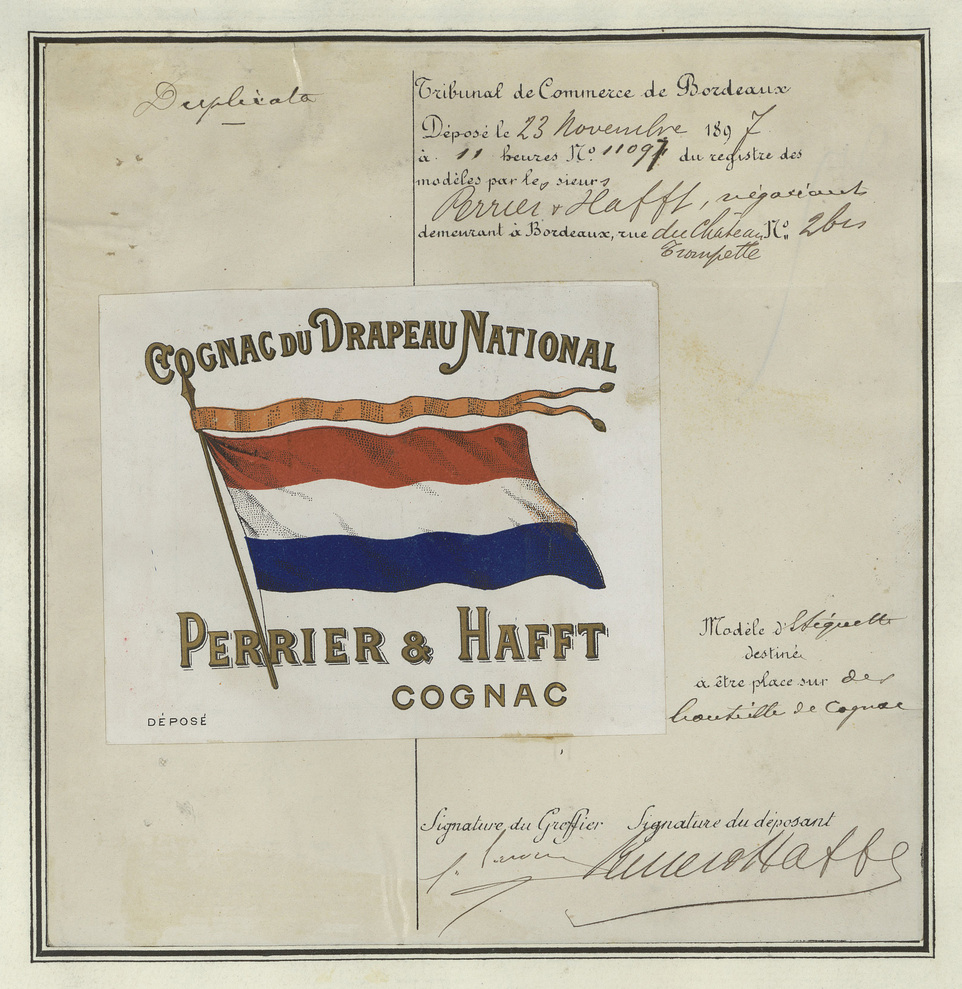 Duplicata
Tribunal de Commerce de Bordeaux
Déposé le 23 Novembre 1897
à 11 heures No. 11097 du registre des
modèles par les sieurs
Perrier & Hafft, négociants
demeurant à Bordeaux, rue du Château No. 2 bis
Trompette
COGNAC DU DRAPEAU NATIONAL
PERRIER & HAFFT
COGNAC
DÉPOSÉ
Modèle d'Etiquette
destiné
à être place sur des
bouteille de cognac
Signature du Greffier Signature du déposant
Perrier & Hafft